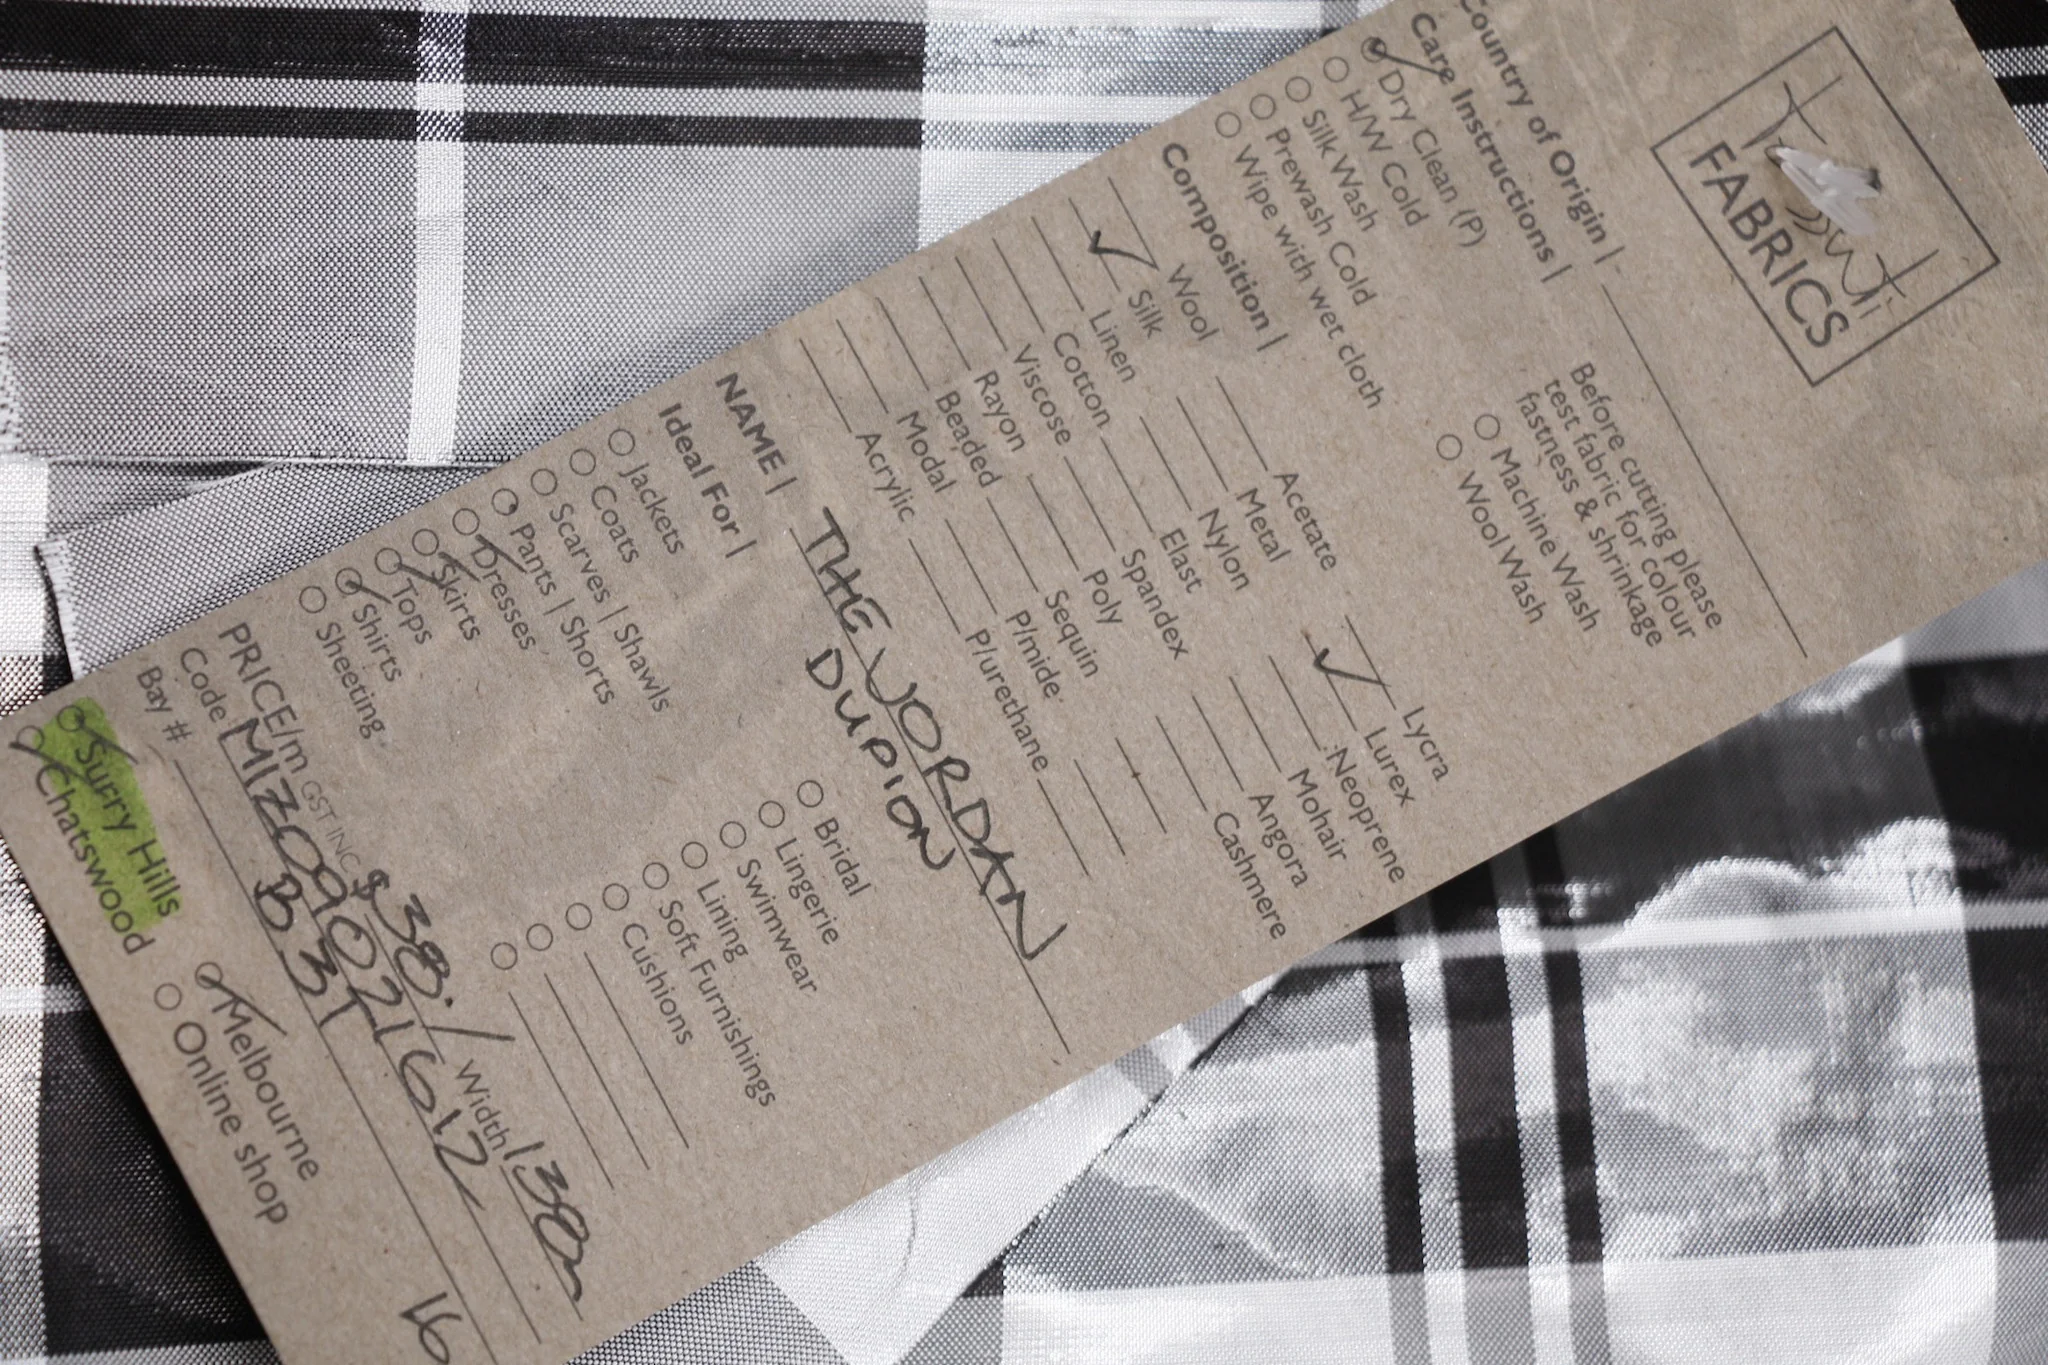 FABRICS
Country of Origin |
Care Instructions |
Dry Clean (P)
H/W Cold
Silk Wash
Prewash Cold
Wipe with wet cloth
Before cutting please
test fabric for colour
fastness & shrinkage
Machine Wash
Wool Wash
Composition |
Wool Acetate Lycra
Silk Metal Lurex
Linen Nylon Neoprene
Cotton Elast Mohair
Viscose Spandex Angora
Rayon Poly Cashmere
Beaded Sequin
Modal P/mide
Acrylic P/urethane
NAME | THE JORDAN
DUPION
Ideal For |
Jackets Bridal
Coats Lingerie
Scarves | Shawls Swimwear
Pants | Shorts Lining
Dresses Soft Furnishings
Skirts Cushions
Tops
Shirts
Sheeting
PRICE/m GST INC $38./ Width 138m
Code MIZ09021612
Bay # B31 16
Surry Hills Melbourne
Chatswood Online shop